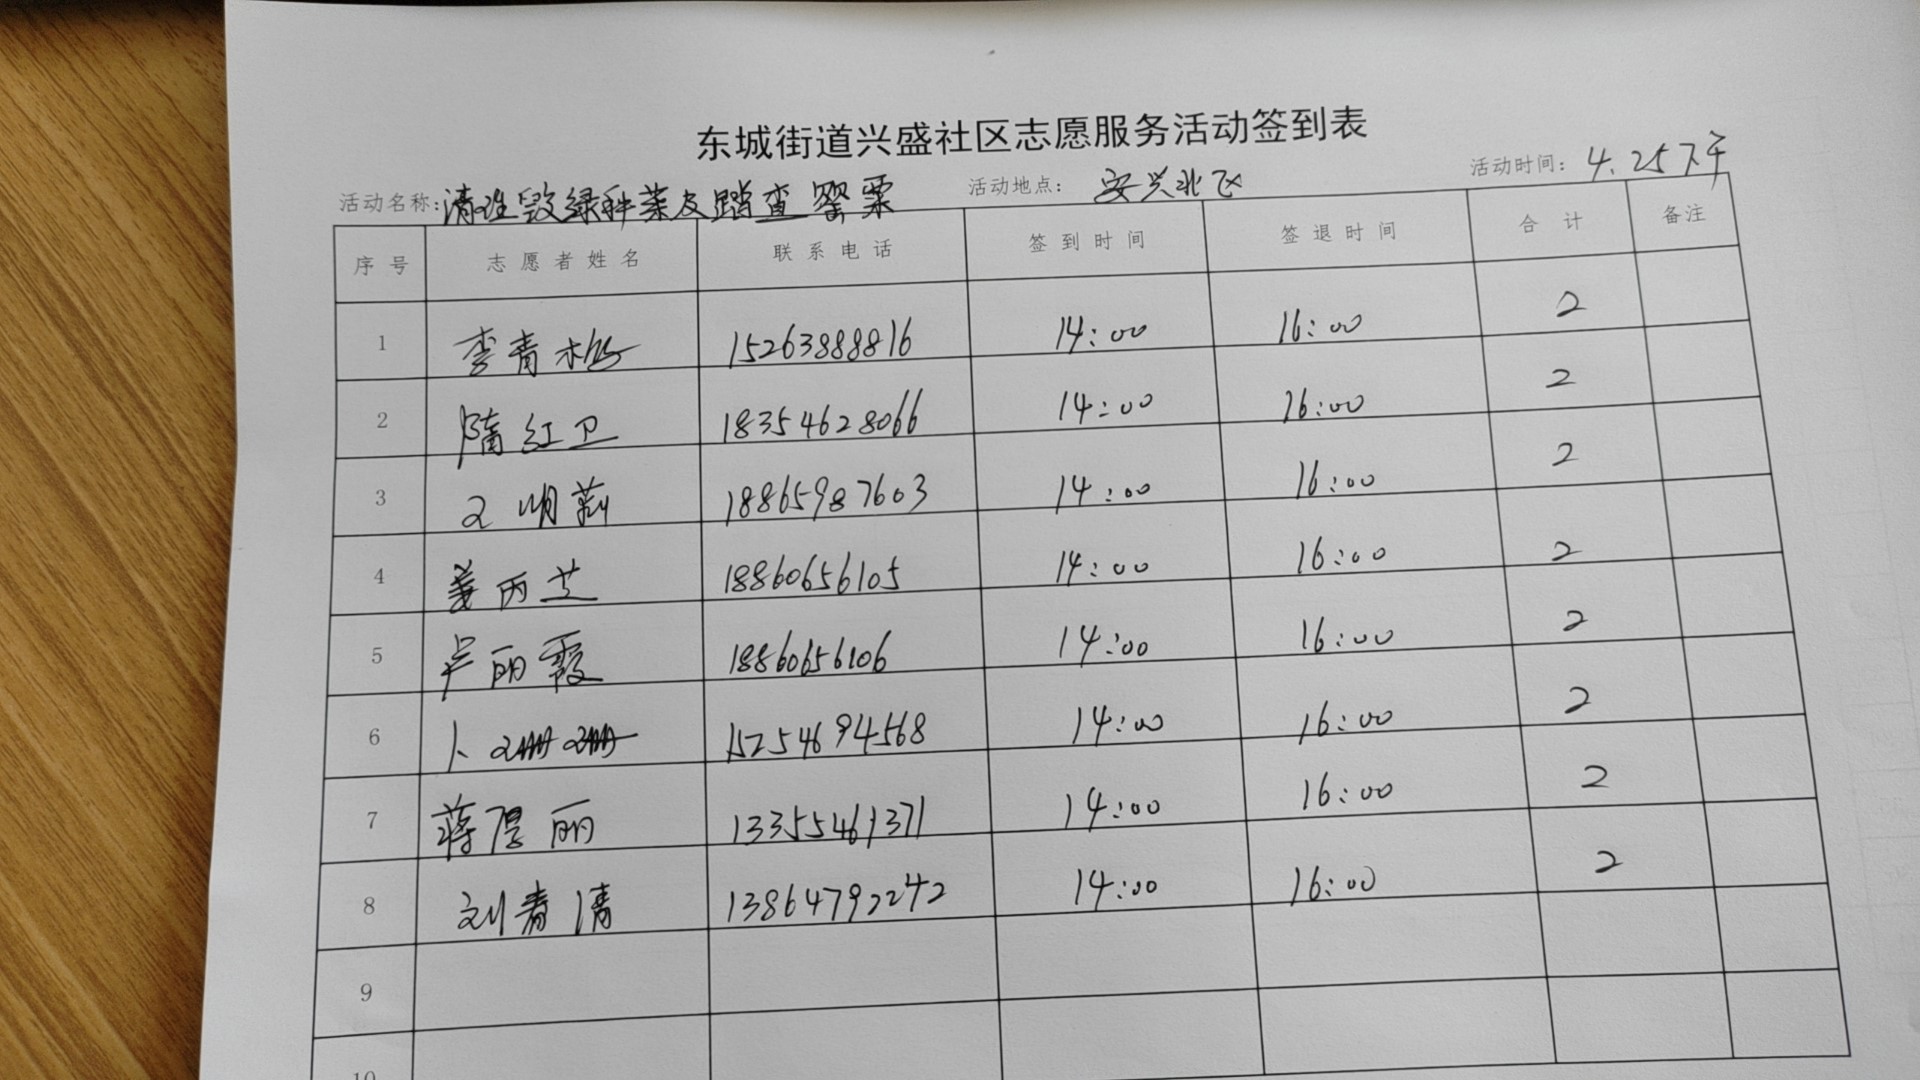 东城街道兴盛社区志愿服务活动签到表
活动名称:清理毁绿种菜及踏查罂粟 活动地点: 安兴北区 活动时间: 4.25下午
序号 志愿者姓名 联系电话 签到时间 签退时间 合计 备注
1 李青梅 15263888816 14:00 16:00 2
2 隋红卫 18354628066 14:00 16:00 2
3 18865987603 14:00 16:00 2
4 姜丙芝 18860656105 14:00 16:00 2
5 卢丽霞 18860656106 14:00 16:00 2
6 卜珊珊 15254694568 14:00 16:00 2
7 蒋厚丽 13355461371 14:00 16:00 2
8 刘春清 13864792242 14:00 16:00 2
9
10